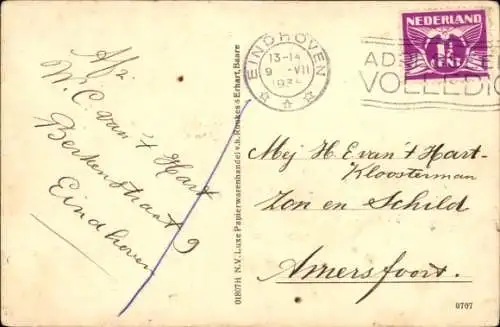 Afz.
W. C. van 't Hart
Berkenstraat 9
Eindhoven
EINDHOVEN
13-14
9 - VII
NEDERLAND
1½
CENT
VOLLEDIG
Mej H. E van 't Hart-
Kloosterman
Zon en Schild
Amersfoort.
01807H N.V. Luxe Papierwarenhandel v.h. Roukes & Erhart, Baarn
0707